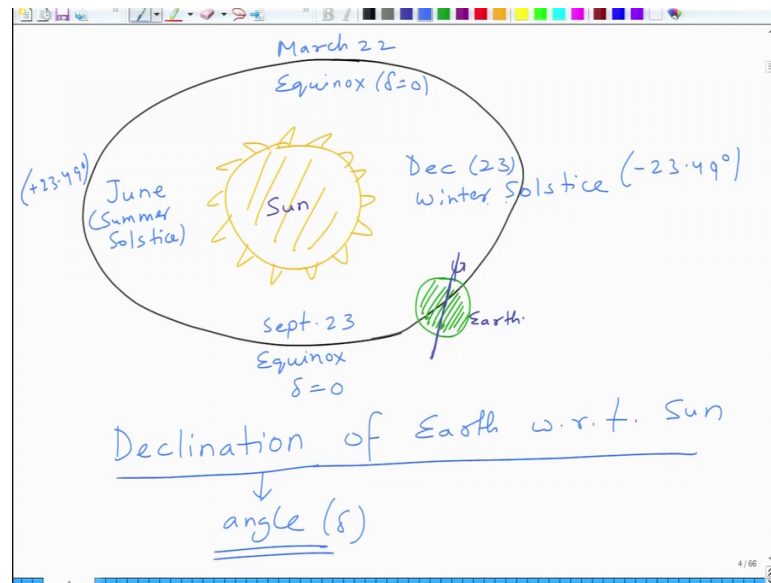 March 22
Equinox (δ=0)
(+23.49°)
June
(Summer
Solstice)
Sun
Dec (23)
Winter Solstice (-23.49°)
Earth.
Sept. 23
Equinox
δ=0
Declination of Earth w.r.t. Sun
angle (δ)
4 / 66